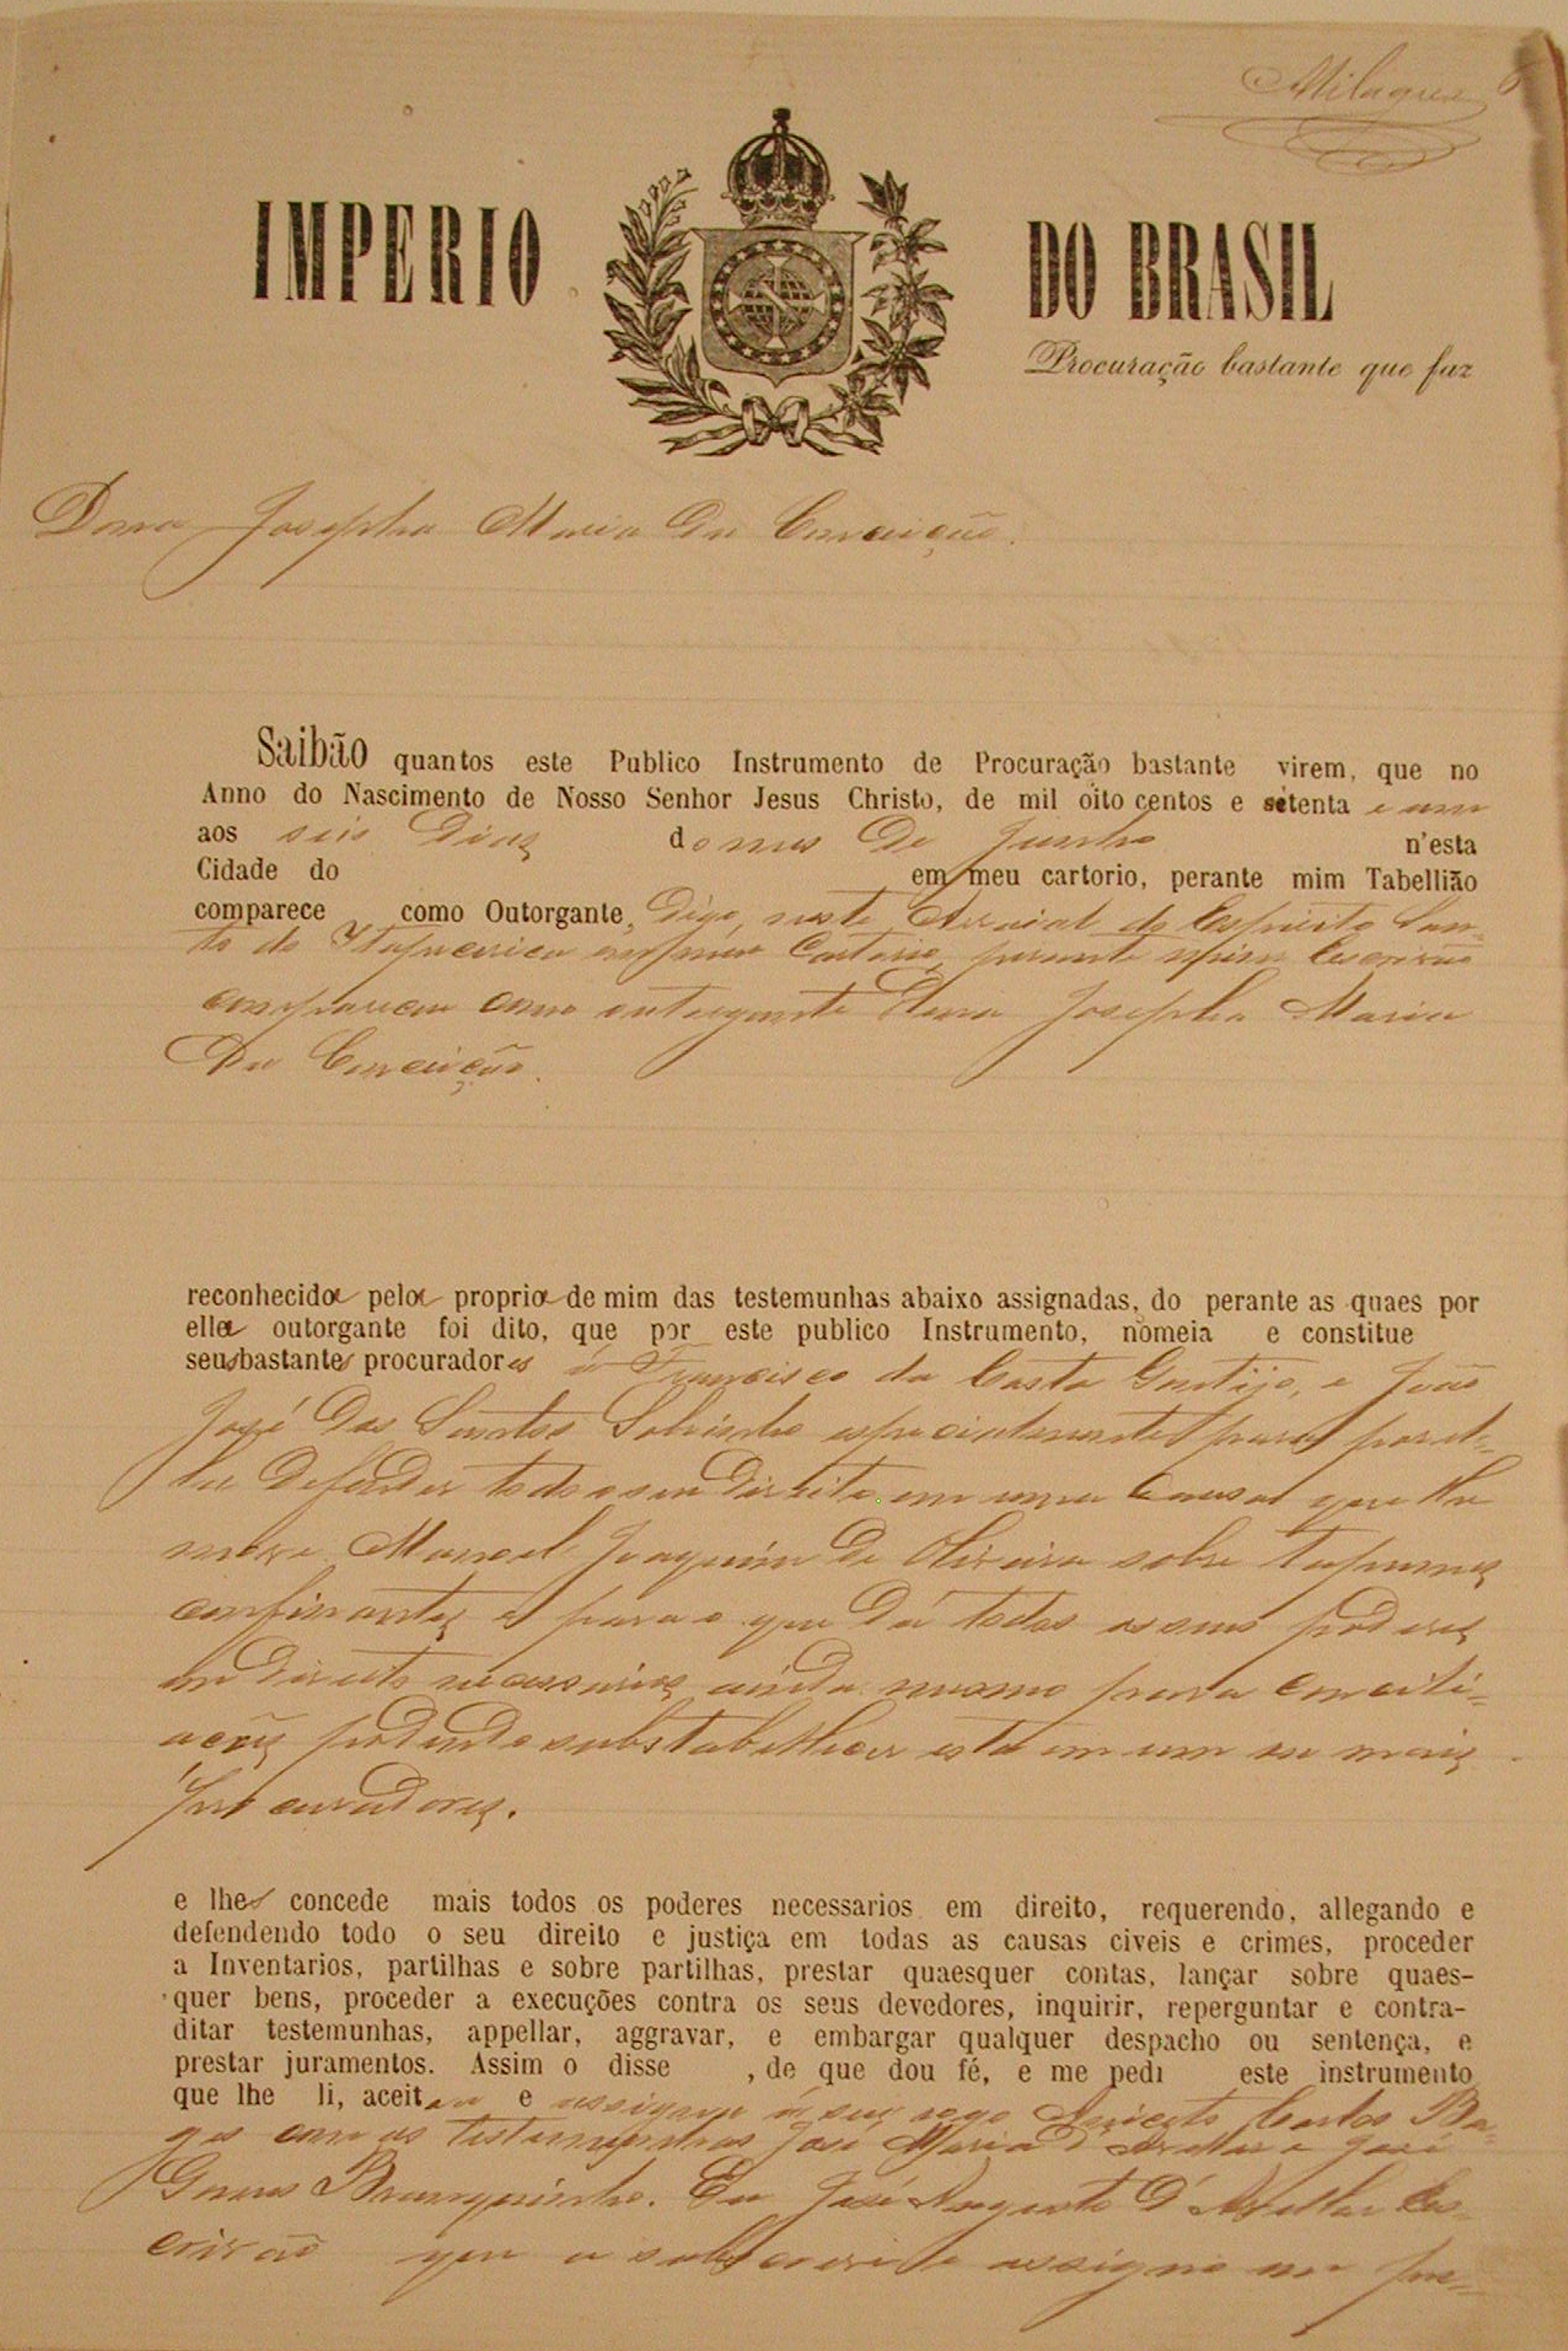 Milagres
IMPERIO DO BRASIL
Procuração bastante que faz
Dona Josepha Maria da Conceição.
Saibão quantos este Publico Instrumento de Procuração bastante virem, que no
Anno do Nascimento de Nosso Senhor Jesus Christo, de mil oito centos e setenta e um
aos seis dias do mes de Junho n'esta
Cidade do em meu cartorio, perante mim Tabellião
comparece como Outorgante, digo, neste Arraial do Espirito San-
to de Itapecerica em meu Cartorio, perante mim Escrivão
compareceu como outorgante Dona Josepha Maria
da Conceição.
reconhecida pela propria de mim das testemunhas abaixo assignadas, do perante as quaes por
ella outorgante foi dito, que por este publico Instrumento, nomeia e constitue
seus bastantes procuradores a Francisco da Costa e João
José dos Santos Sobrinho especialmente para
defender todo o seu direito em uma Causa que lhe
move Manoel Joaquim de Oliveira sobre
confinantes para o que dá todos os seus poderes
em direito necessarios, ainda mesmo para concili-
ações podendo substabellecer esta em um ou mais
procuradores.
e lhes concede mais todos os poderes necessarios em direito, requerendo, allegando e
defendendo todo o seu direito e justiça em todas as causas civeis e crimes, proceder
a Inventarios, partilhas e sobre partilhas, prestar quaesquer contas, lançar sobre quaes-
quer bens, proceder a execuções contra os seus devedores, inquirir, reperguntar e contra-
ditar testemunhas, appellar, aggravar, e embargar qualquer despacho ou sentença, e
prestar juramentos. Assim o disse , de que dou fé, e me pedi este instrumento
que lhe li, aceitou e assigna a seu rogo Carlos
com as testemunhas José Maria d'Avellar e José
Gomes Branquinho. Eu José Augusto d'Avellar Es-
crivão que a subscrevi e assigno em